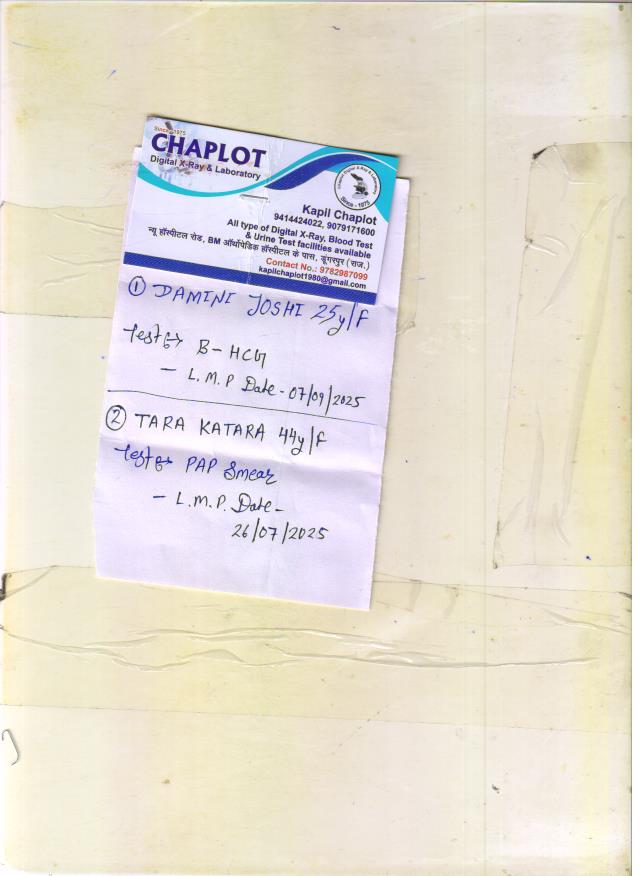 Since 1975
CHAPLOT
Digital X-Ray & Laboratory
Chaplot Digital X-Ray & Laboratory
Since - 1975
Kapil Chaplot
9414424022, 9079171600
All type of Digital X-Ray, Blood Test
& Urine Test facilities available
न्यू हॉस्पीटल रोड, BM ऑर्थोपेडिक हॉस्पीटल के पास, डूंगरपुर (राज.)
Contact No.: 9782987099
kapilchaplot1980@gmail.com
① DAMINI JOSHI 25y/F
Test
B-HCG
- L.M.P Date - 07/09/2025
② TARA KATARA 44y/F
Test PAP Smear
- L.M.P. Date -
26/07/2025